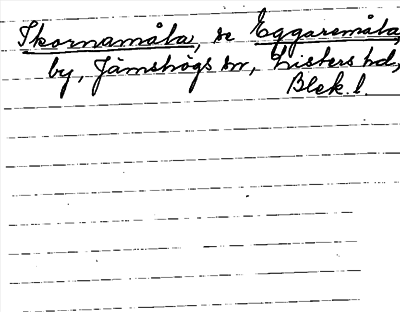 Skornamåla, se Eggaremåla,
by, Jämshögs sn, Listers hd,
Blek. l.